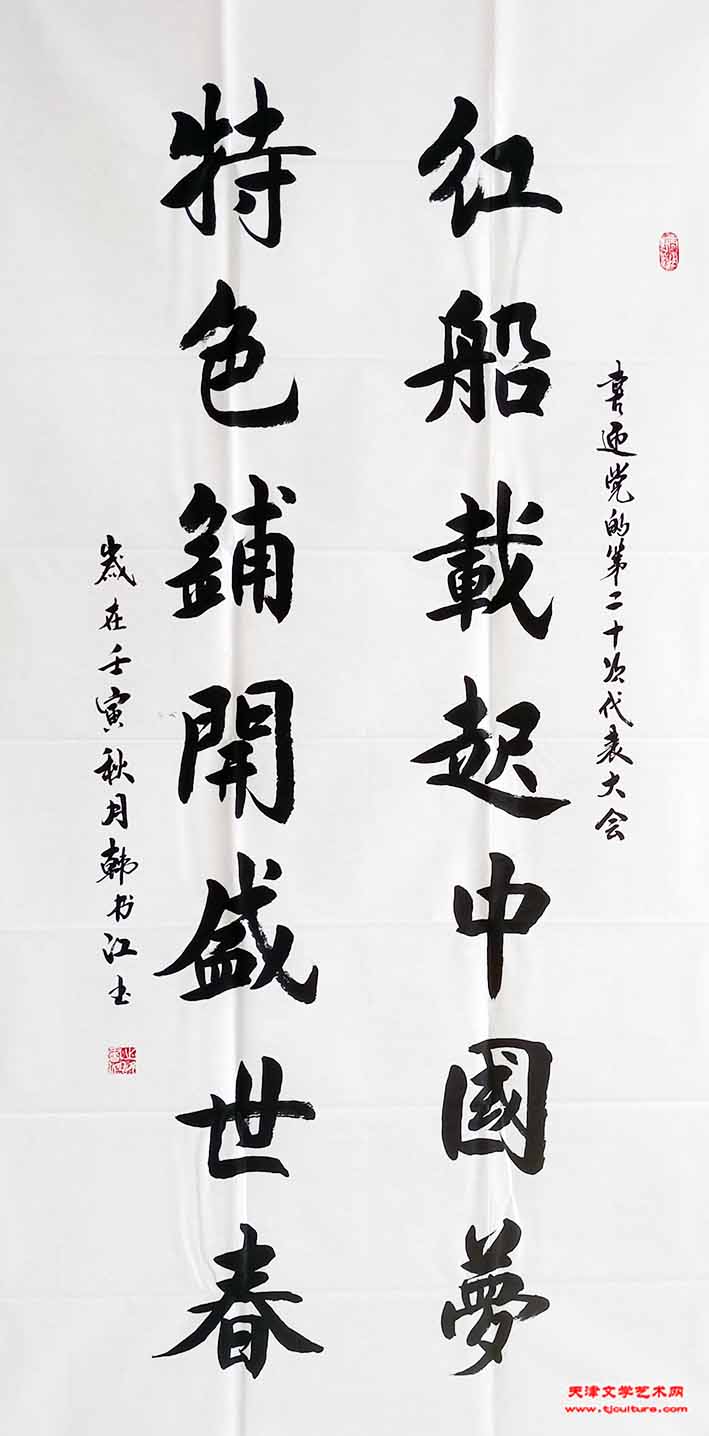 喜迎党的第二十次代表大会
红船載起中國夢
特色鋪開盛世春
歲在壬寅秋月韩书江书
天津文学艺术网
www.tjculture.com